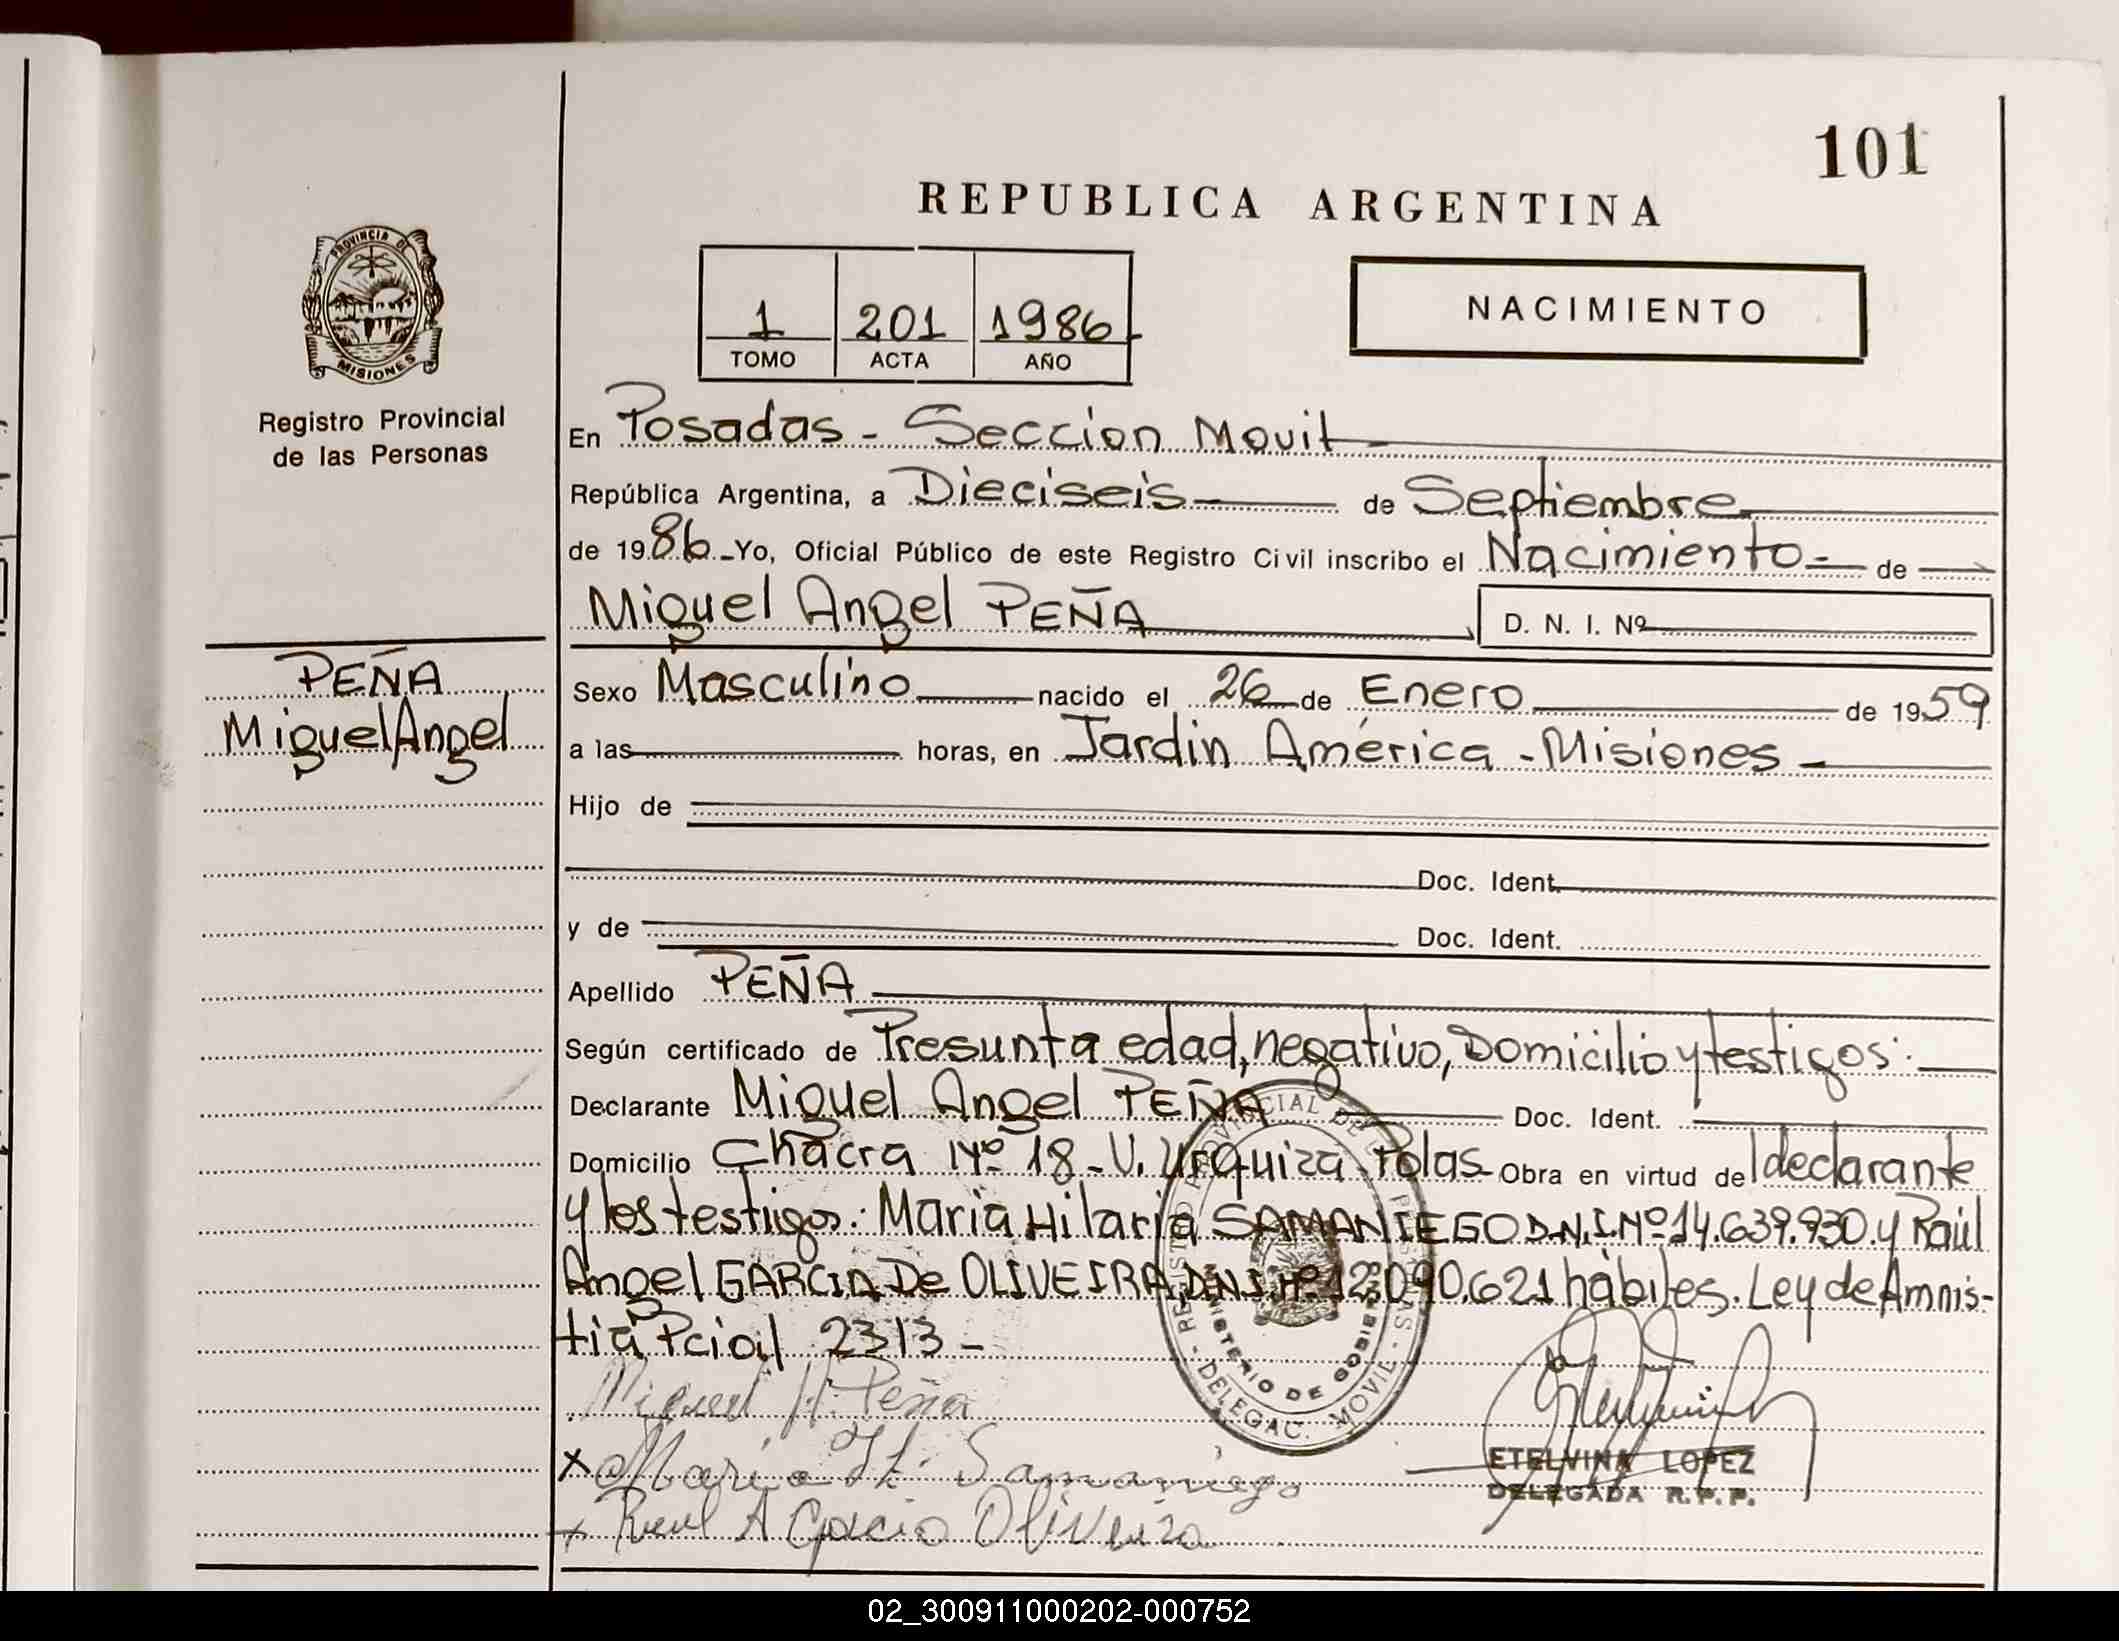 101
REPUBLICA ARGENTINA
PROVINCIA DE
MISIONES
Registro Provincial
de las Personas
1 201 1986
TOMO ACTA AÑO
NACIMIENTO
En Posadas - Seccion Movil
República Argentina, a Dieciseis de Septiembre
de 1986 - Yo, Oficial Público de este Registro Civil inscribo el Nacimiento de
Miguel Angel PEÑA D. N. I. Nº
PEÑA
Miguel Angel
Sexo Masculino nacido el 26 de Enero de 1959
a las horas, en Jardin América - Misiones -
Hijo de
Doc. Ident.
y de Doc. Ident.
Apellido PEÑA
Según certificado de Presunta edad, negativo, Domicilio y testigos.
Declarante Miguel Angel PEÑA Doc. Ident.
Domicilio Chacra Nº 18 - V. Urquiza - Pdas Obra en virtud del declarante
y los testigos: Maria Hilaria SAMANIEGO D.N.I. Nº 14.639.930. y Raúl
Angel GARCIA De OLIVEIRA, D.N.I. Nº 12.090.621 hábiles. Ley de Amnis-
tia Pcial 2313 -
REGISTRO PROVINCIAL DE LAS PERSONAS - DELEGAC. MOVIL -
MINISTERIO DE GOBIERNO
Miguel A. Peña
x Maria H. Samaniego
x Raul A Garcia Oliveira
ETELVINA LOPEZ
DELEGADA R.P.P.
02_300911000202-000752